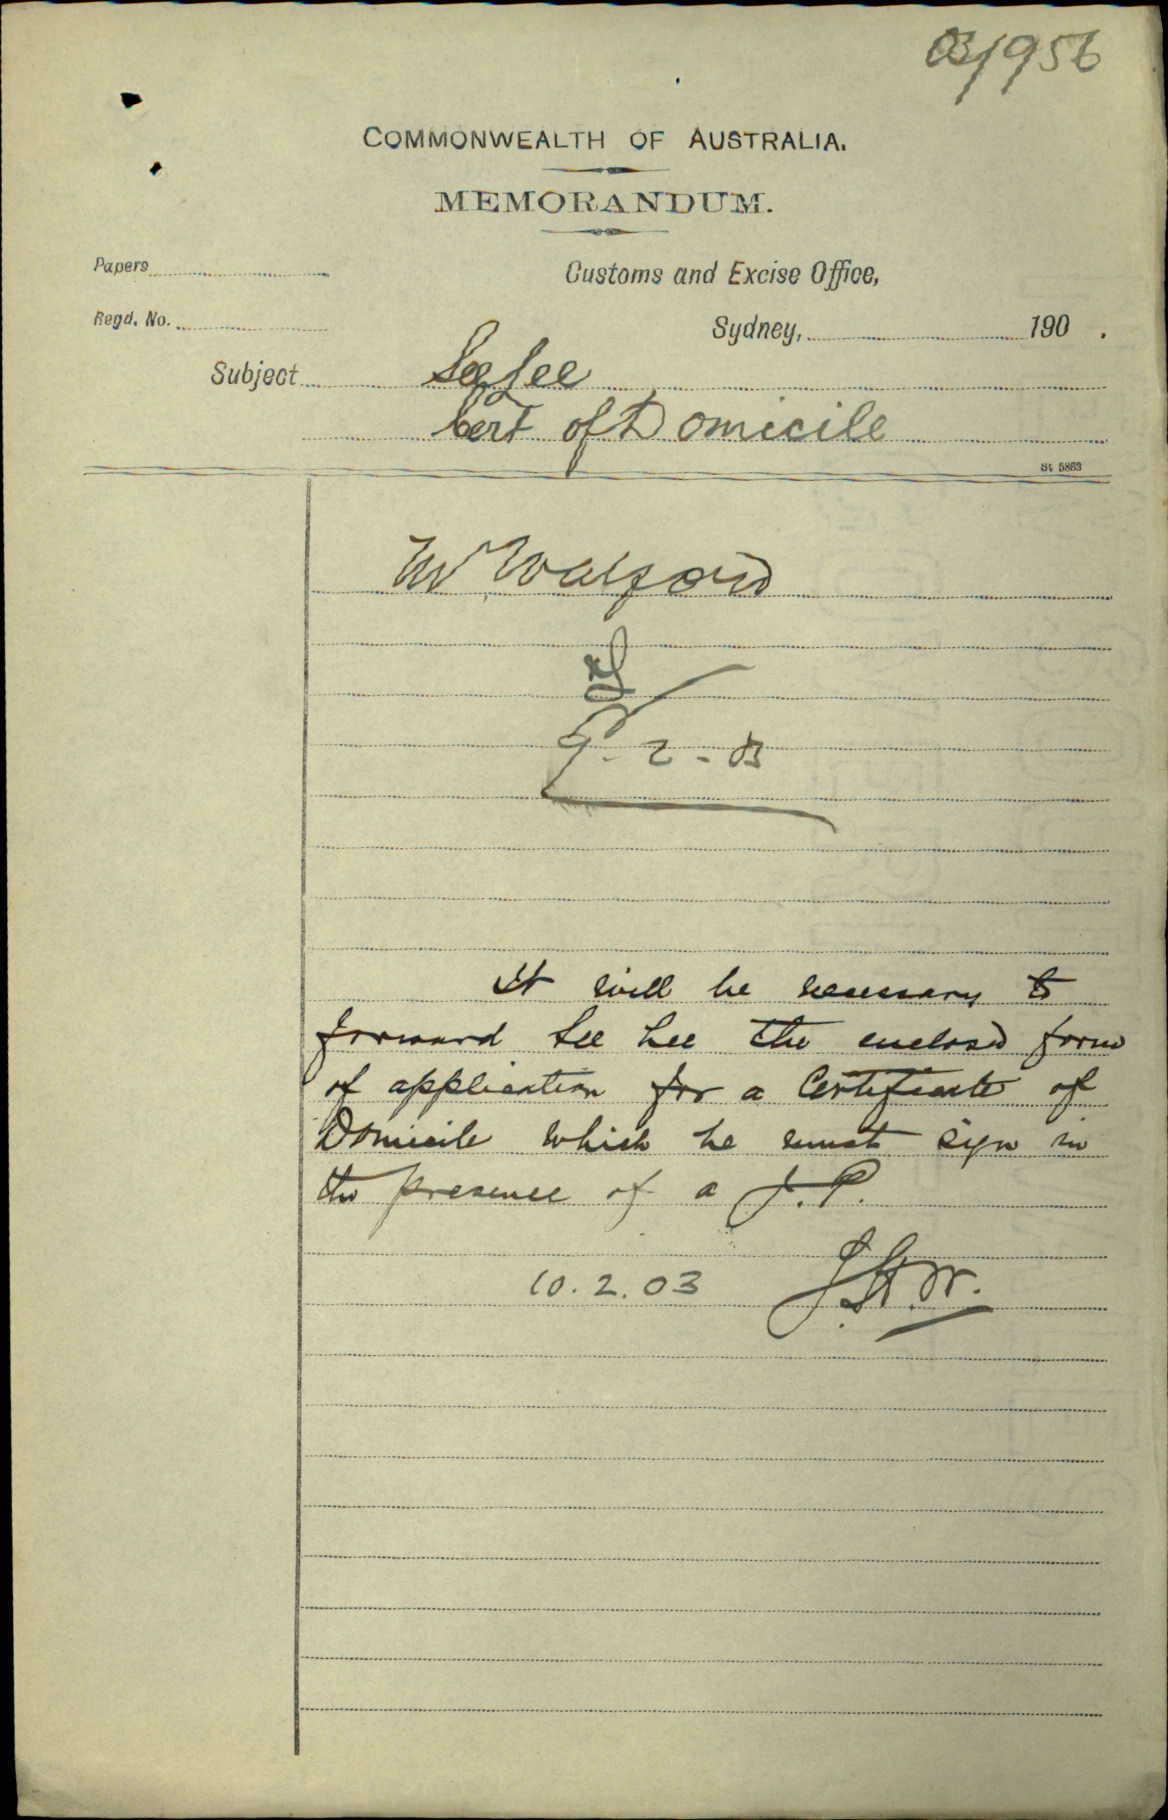 03/956
COMMONWEALTH OF AUSTRALIA.
MEMORANDUM.
Papers
Customs and Excise Office,
Regd. No.
Sydney, 190 .
Subject See Lee
Cert of Domicile
St 5863
Mr Walford
9-2-03
It will be necessary to
forward See Lee the enclosed form
of application for a Certificate of
Domicile which he must sign in
the presence of a J.P.
10.2.03 J.St.W.